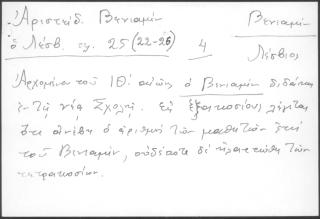 Ἀριστείδ. Βενιαμὶν
ὁ Λέσβ. σχ. 25 (22-26) 4
Βενιαμὶν
Λέσβιος
Ἀρχομένου τοῦ ΙΘ΄ αἰῶνος ὁ Βενιαμὶν διδάσκει
ἐν τῇ νέᾳ Σχολῇ. Εἰς ἑξακοσίους λέγεται
ὅτι ἀνέβη ὁ ἀριθμὸς τῶν μαθητῶν ἐπὶ
τοῦ Βενιαμίν, οὐδέποτε δὲ ἠλαττώθη τῶν
τετρακοσίων.